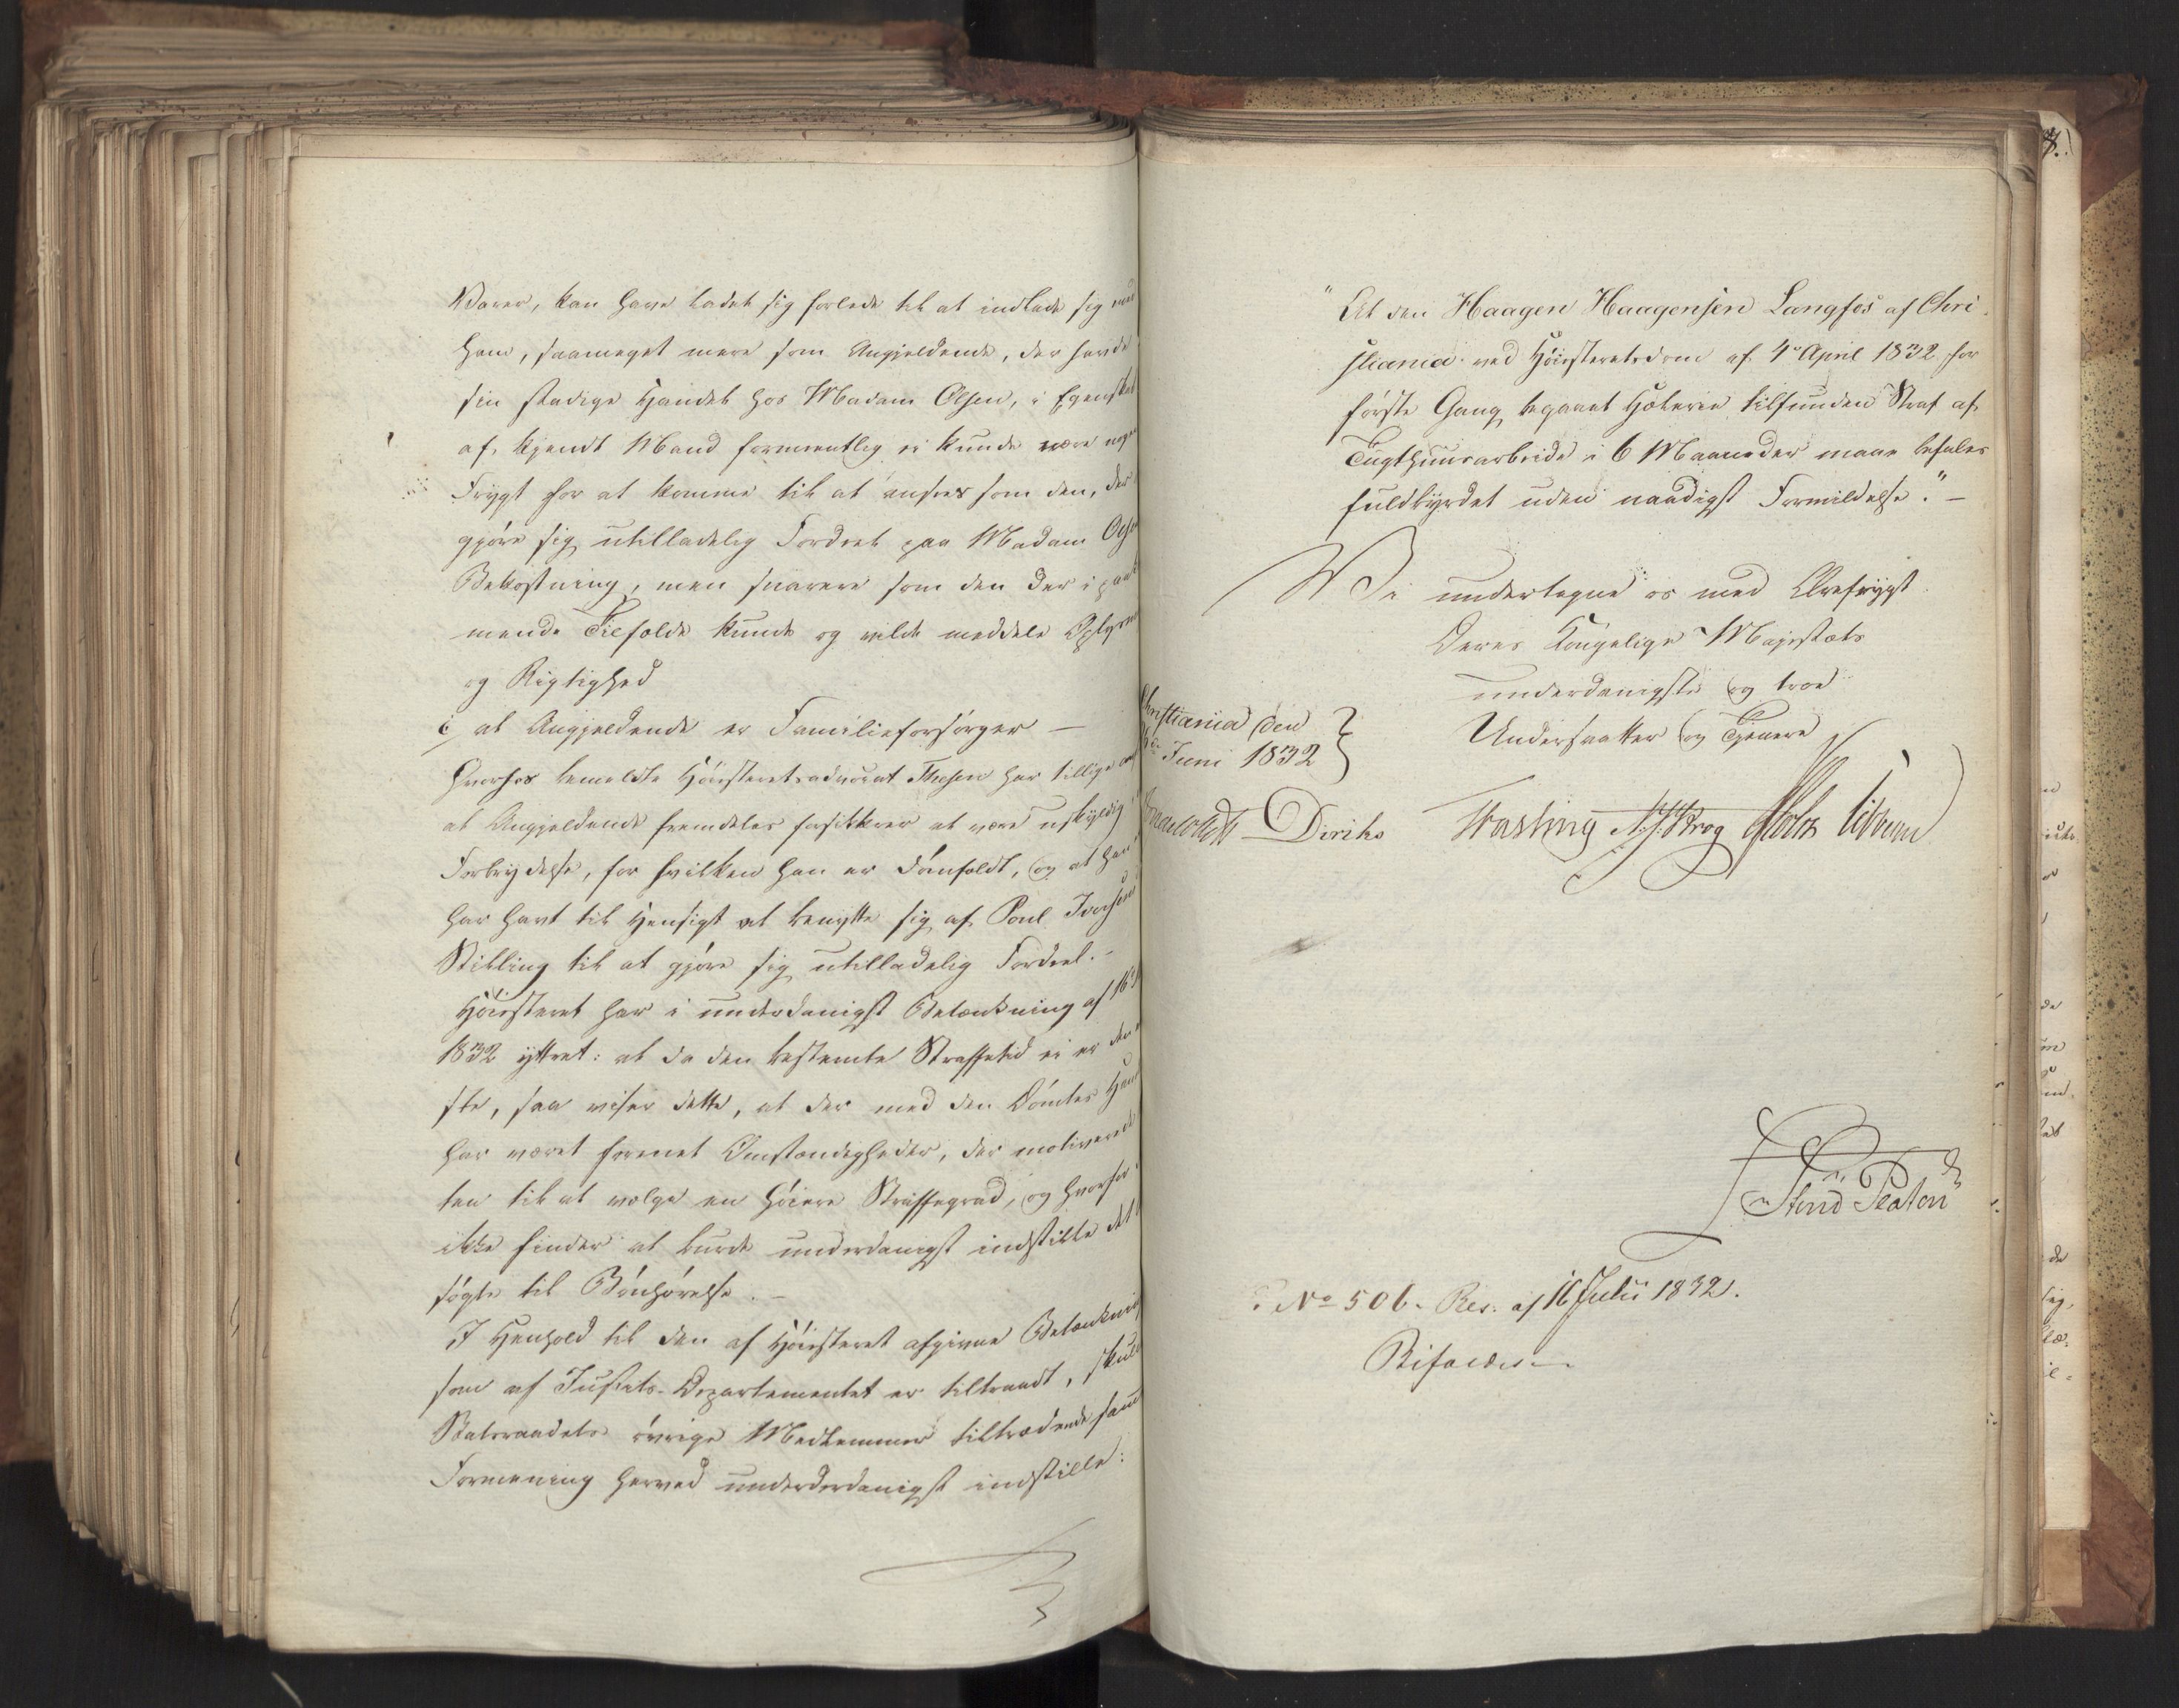 Varer, kan have ladet sig forlede til at indlade sig med
ham, saameget mere som Angjeldende, der havde
sin stadige Handel hos Madam Olsen, i Egenskab
af kjendt Mand formeentlig ei kunde nære nogen
Frygt for at komme til at ansees som den, der
gjøre sig utilladelig Fordeel paa Madam Olsens
Bekostning, men snarere som den der i paakom
mende Tilfælde kunde og vilde meddele Oplysning
og Rigtighed
c/ at Angjeldende er Familieforsørger —
Hvorhos bemeldte Høiesteretsadvocat Thesen har tillige
at Angjeldende fremdeles forsikkrer at være uskyldig i
Forbrydelse, for hvilken han er domfældt, og at han
har havt til Hensigt at benytte sig af Poul Iversens
Stilling til at gjøre sig utilladelig Fordeel.-
Høiesteret har i underdanigst Betænkning af 16
1832 yttret: at da den bestemte Straffetid ei er den
ste, saa viser dette, at der med den Dømtes
har været forenet Omstændigheder, der motiverede
ten til at vælge en høiere Straffegrad, og hvorfor
ikke finder at burde underdanigst indstille det
søgte til Bønhørelse.-
I Henhold til den af Høiesteret afgivne Betænkning
som af Justits-Departementet er tiltraadt, skulle
Statsraadets øvrige Medlemmer tiltrædende samme
Formening herved underderdanigst indstille:
"At den Haagen Haagensen Langfos af Chri-
stiania ved Høiesteretsdom af 4de April 1832 for
første Gang begaaet Hæleri tilfunden Straf af
Tugthuusarbeide i 6 Maaneder maae befales
fuldbyrdet uden naadigst Formildelse." -
Vi undertegne os med Ærefrygt
Deres Kongelige Majestæts
underdanigste og troe
Undersaatter og Tjenere
Christiania den
Juni 1832
Diriks Fasting Krog Holst Vibe
Sten Platou
No 506. Res. af 16 Julii 1832.
Bifaldes